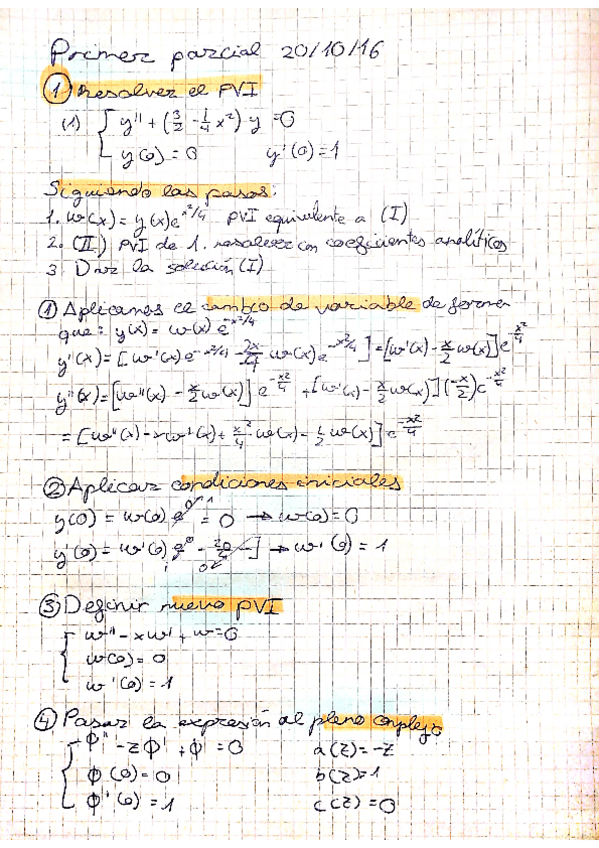 Primer parcial 20/10/16
① Resolver el PVI
(1) { y'' + (3/2 - 1/4 x²) y = 0
y(0) = 0 y'(0) = 1
Siguiendo los pasos:
1. w(x) = y(x)e^{x²/4} PVI equivalente a (I)
2. (II) PVI de 1. resolver con coeficientes analíticos
3 Dar la solución (I)
① Aplicamos el cambio de variable de forma
que: y(x) = w(x) e^{-x²/4}
y'(x) = [w'(x)e^{-x²/4} - 2x/4 w(x)e^{-x²/4}] = [w'(x) - x/2 w(x)] e^{-x²/4}
y''(x) = [w''(x) - x/2 w(x)] e^{-x²/4} + [w'(x) - x/2 w(x)] (-x/2) e^{-x²/4}
= [w''(x) - xw'(x) + x²/4 w(x) - 1/2 w(x)] e^{-x²/4}
② Aplicar condiciones iniciales
y(0) = w(0) e^0 = 0 → w(0) = 0
y'(0) = w'(0) e^0 - 2·0/4 ] → w'(0) = 1
③ Definir nuevo PVI
{ w'' - xw' + w = 0
w(0) = 0
w'(0) = 1
④ Pasar la expresión al plano complejo
{ ϕ'' - zϕ' + ϕ = 0 a(z) = -z
ϕ(0) = 0 b(z) = 1
ϕ'(0) = 1 c(z) = 0